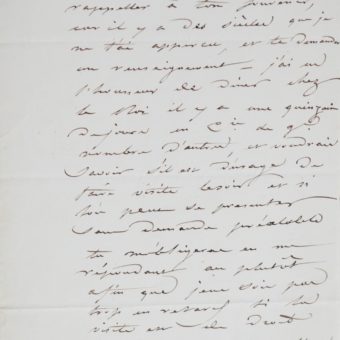 rappeller à ton souvenir,
car il y a des siècles que je
ne t'ai apperçu, et te demander
un renseignement – j'ai eu
l'honneur de diner chez
le Roi il y a une quinzaine
de jours en Cie de gd
nombre d'autres, et voudrais
savoir s'il est d'usage de
faire visite le soir et si
l'on peut se presenter
sans demande préalable
tu m'obligeras en me
répondant au plutôt
afin que je ne sois pas
trop en retard si la
visite est de droit